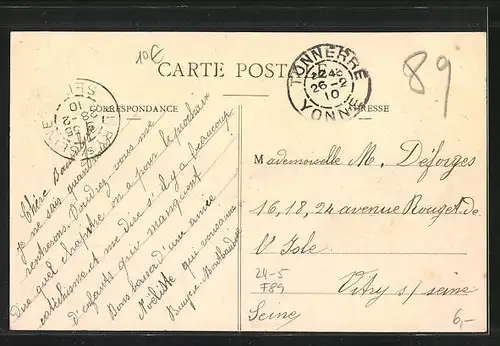 10€
CARTE POSTALE
CORRESPONDANCE
ADRESSE
TONNERRE
26-2
10
YONNE
89
Chère
Je ne sais quand nous
rentrerons. Voudrez-vous me
dire quel chapitre on a pour le prochain
catéchisme et me dire s'il y a beaucoup
d'enfants qui manquent
Bons baisers d'une amie
qui vous aime
Mademoiselle M. Déforges
16, 18, 24 avenue Rouget de
l'Isle
Vitry s/ seine
Seine
24-5
F89
6,-